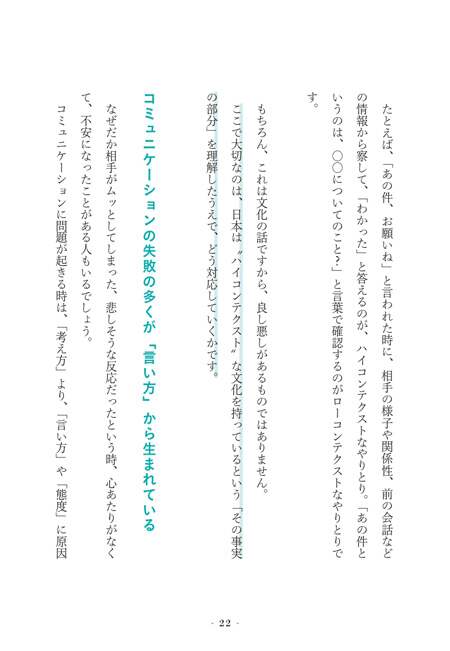 たとえば、「あの件、お願いね」と言われた時に、相手の様子や関係性、前の会話など
の情報から察して、「わかった」と答えるのが、ハイコンテクストなやりとり。「あの件と
いうのは、〇〇についてのこと?」と言葉で確認するのがローコンテクストなやりとりで
す。
もちろん、これは文化の話ですから、良し悪しがあるものではありません。
ここで大切なのは、日本は〝ハイコンテクスト〟な文化を持っているという「その事実
の部分」を理解したうえで、どう対応していくかです。
コミュニケーションの失敗の多くが「言い方」から生まれている
なぜだか相手がムッとしてしまった、悲しそうな反応だったという時、心あたりがなく
て、不安になったことがある人もいるでしょう。
コミュニケーションに問題が起きる時は、「考え方」より、「言い方」や「態度」に原因
- 22 -